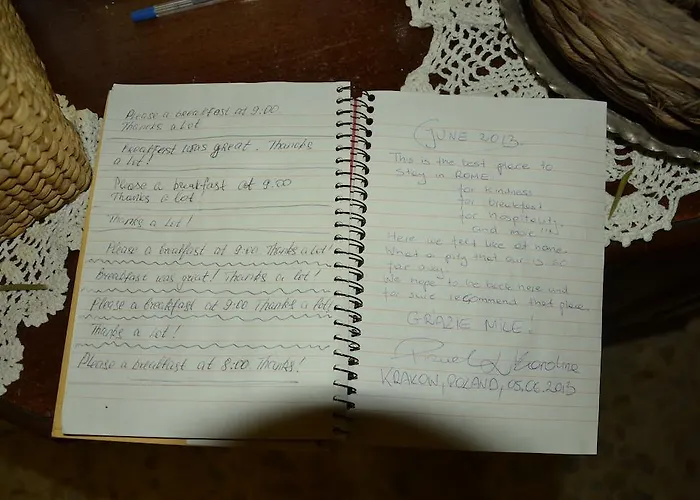 Please a breakfast at 9:00
Thanks a lot
Breakfast was great. Thanks
a lot!
Please a breakfast at 9:00
Thanks a lot
Thanks a lot!
Please a breakfast at 9:00 Thanks a lot!
Breakfast was great! Thanks a lot!
Please a breakfast at 9:00 Thanks a lot!
Thanks a lot!
Please a breakfast at 8:00 Thanks!
JUNE 2013
This is the best place to
stay in ROME
for kindness
for breakfast
for hospitality
and more
Here we felt like at home.
What a pity that our is so
far away.
We hope to be back here and
for sure recommend that place.
GRAZIE MILE!
Karolina
KRAKOW, POLAND, 05.06.2013